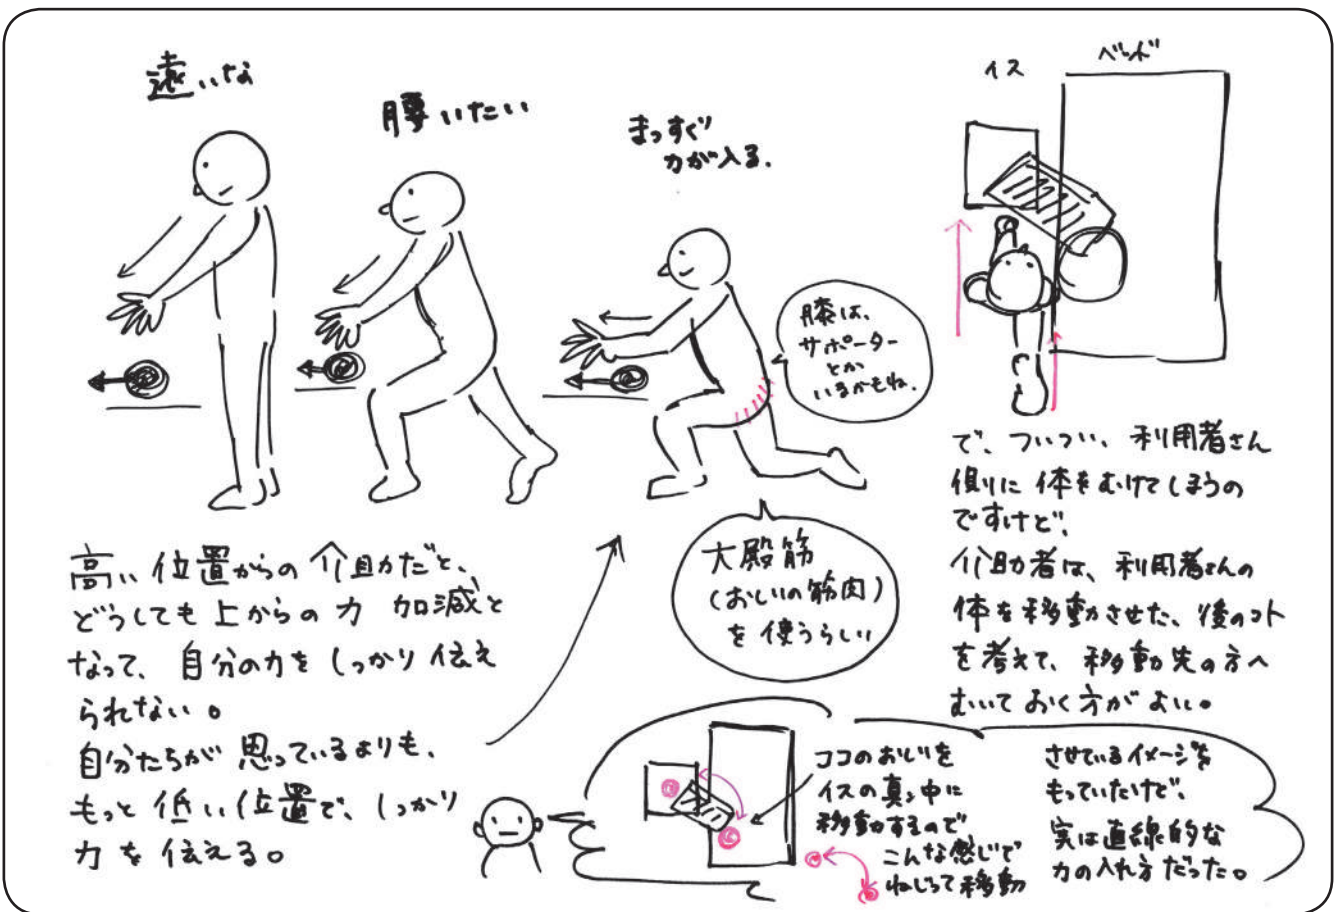 遠いな
腰いたい
まっすぐ
力が入る.
イス
ベッド
膝は、
サポーター
とか
いるかもね.
大殿筋
(おしりの筋肉)
を使うらしい
高い位置からの介助だと、
どうしても上からの力加減と
なって、自分の力をしっかり伝え
られない。
自分たちが思っているよりも、
もっと低い位置で、しっかり
力を伝える。
で、ついつい、利用者さん
側に体をむけてしまうの
ですけど、
介助者は、利用者さんの
体を移動させた、後のコト
を考えて、移動先の方へ
むいておく方がよい。
ココのおしりを
イスの真ン中に
移動するので
こんな感じで
ねじって移動
させているイメージを
もっていたけど、
実は直線的な
力の入れ方だった。